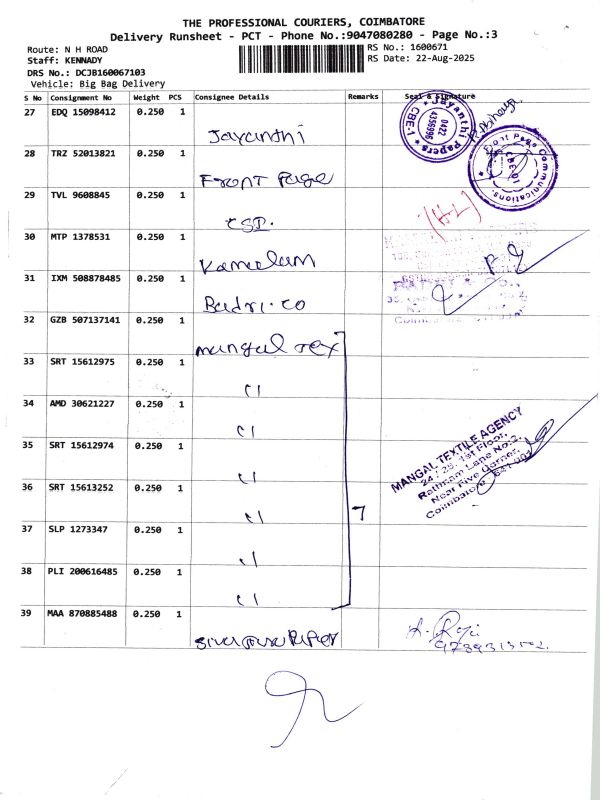 THE PROFESSIONAL COURIERS, COIMBATORE
Delivery Runsheet - PCT - Phone No.:9047080280 - Page No.:3
Route: N H ROAD
RS No.: 1600671
Staff: KENNADY
RS Date: 22-Aug-2025
DRS No.: DCJB160067103
Vehicle: Big Bag Delivery
S No Consignment No Weight PCS Consignee Details Remarks Seal & Signature
27 EDQ 15098412 0.250 1 Jayanthi
Jayanthi Papers
0422
4356996
CBE-1
28 TRZ 52013821 0.250 1 Front Page
Front Page Communications
29 TVL 9608845 0.250 1 CSP.
30 MTP 1378531 0.250 1 Kamalam
31 IXM 508878485 0.250 1 Badri.co
32 GZB 507137141 0.250 1 mangal Tex
33 SRT 15612975 0.250 1 "
34 AMD 30621227 0.250 1 "
35 SRT 15612974 0.250 1 "
MANGAL TEXTILE AGENCY
24 / 25, 1st Floor,
Rathnam Lane No.2,
Near Five Corner,
Coimbatore
36 SRT 15613252 0.250 1 " 7
37 SLP 1273347 0.250 1 "
38 PLI 200616485 0.250 1 "
39 MAA 870885488 0.250 1